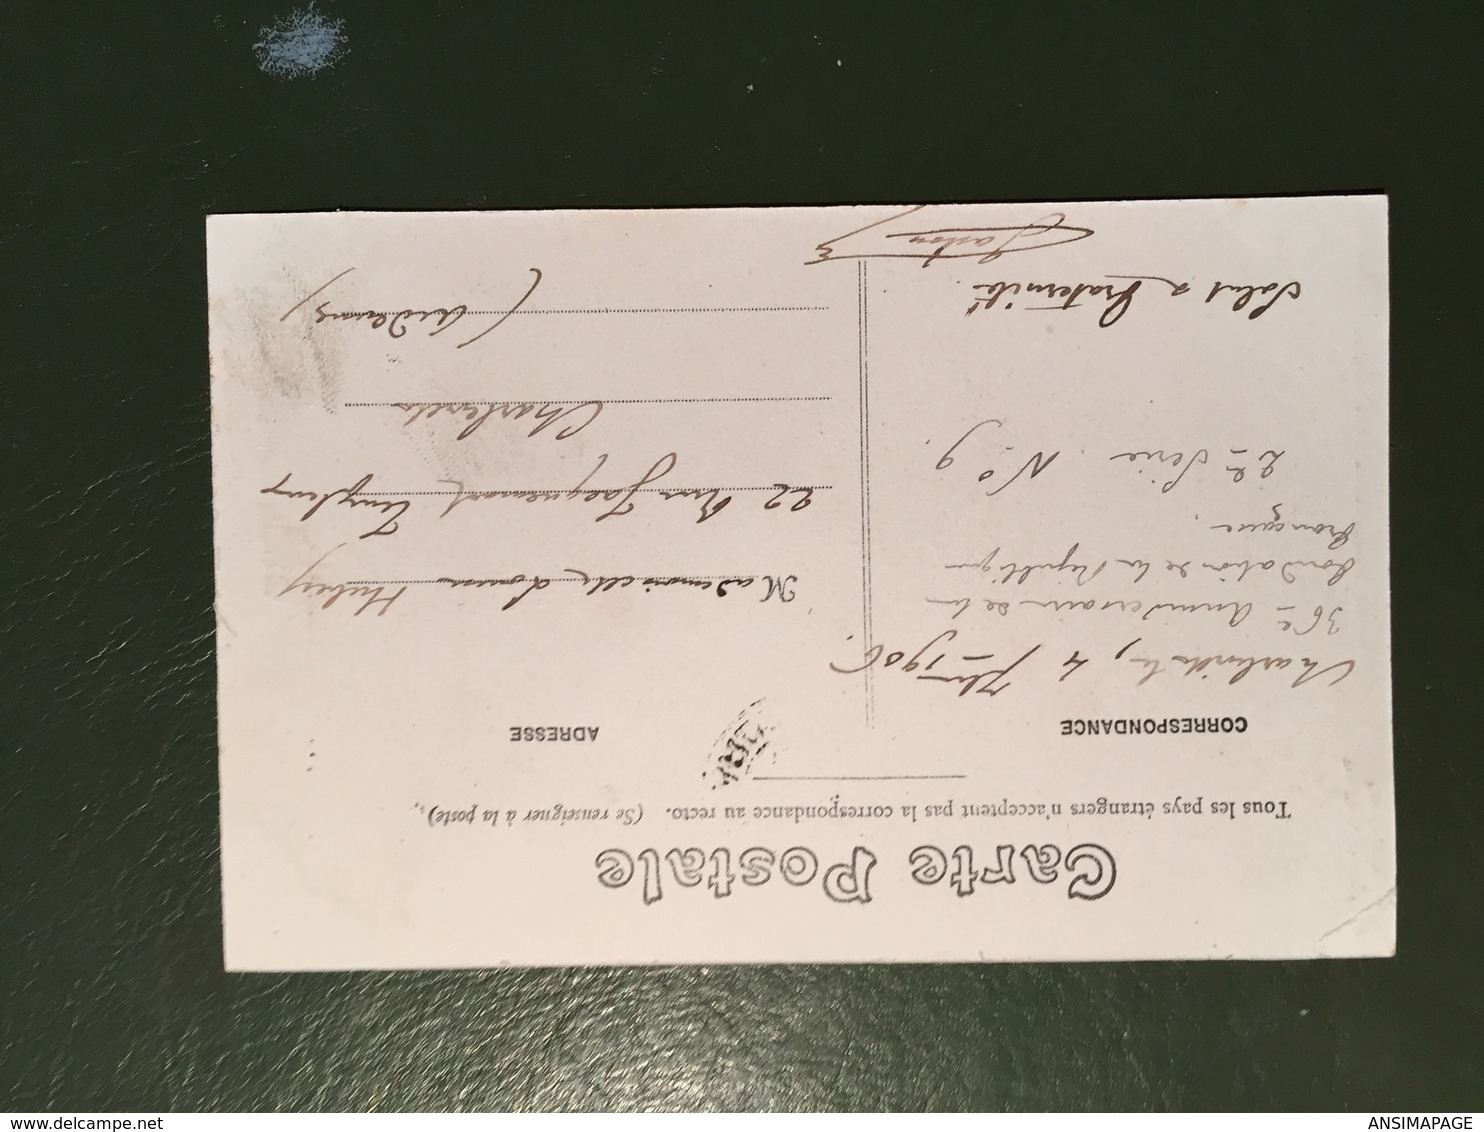 Carte Postale
Tous les pays étrangers n'acceptent pas la correspondance au recto. (Se renseigner à la poste).
CORRESPONDANCE
Charleville, 4 7bre 1906.
36e Anniversaire de la
fondation de la République
française.
2e Série. No 9.
Salut & fraternité.
Gaston
ADRESSE
Mademoiselle Louisa Hubey
22 Rue Jacquemart Templeux
Charleville
(Ardennes)
ANSIMAPAGE